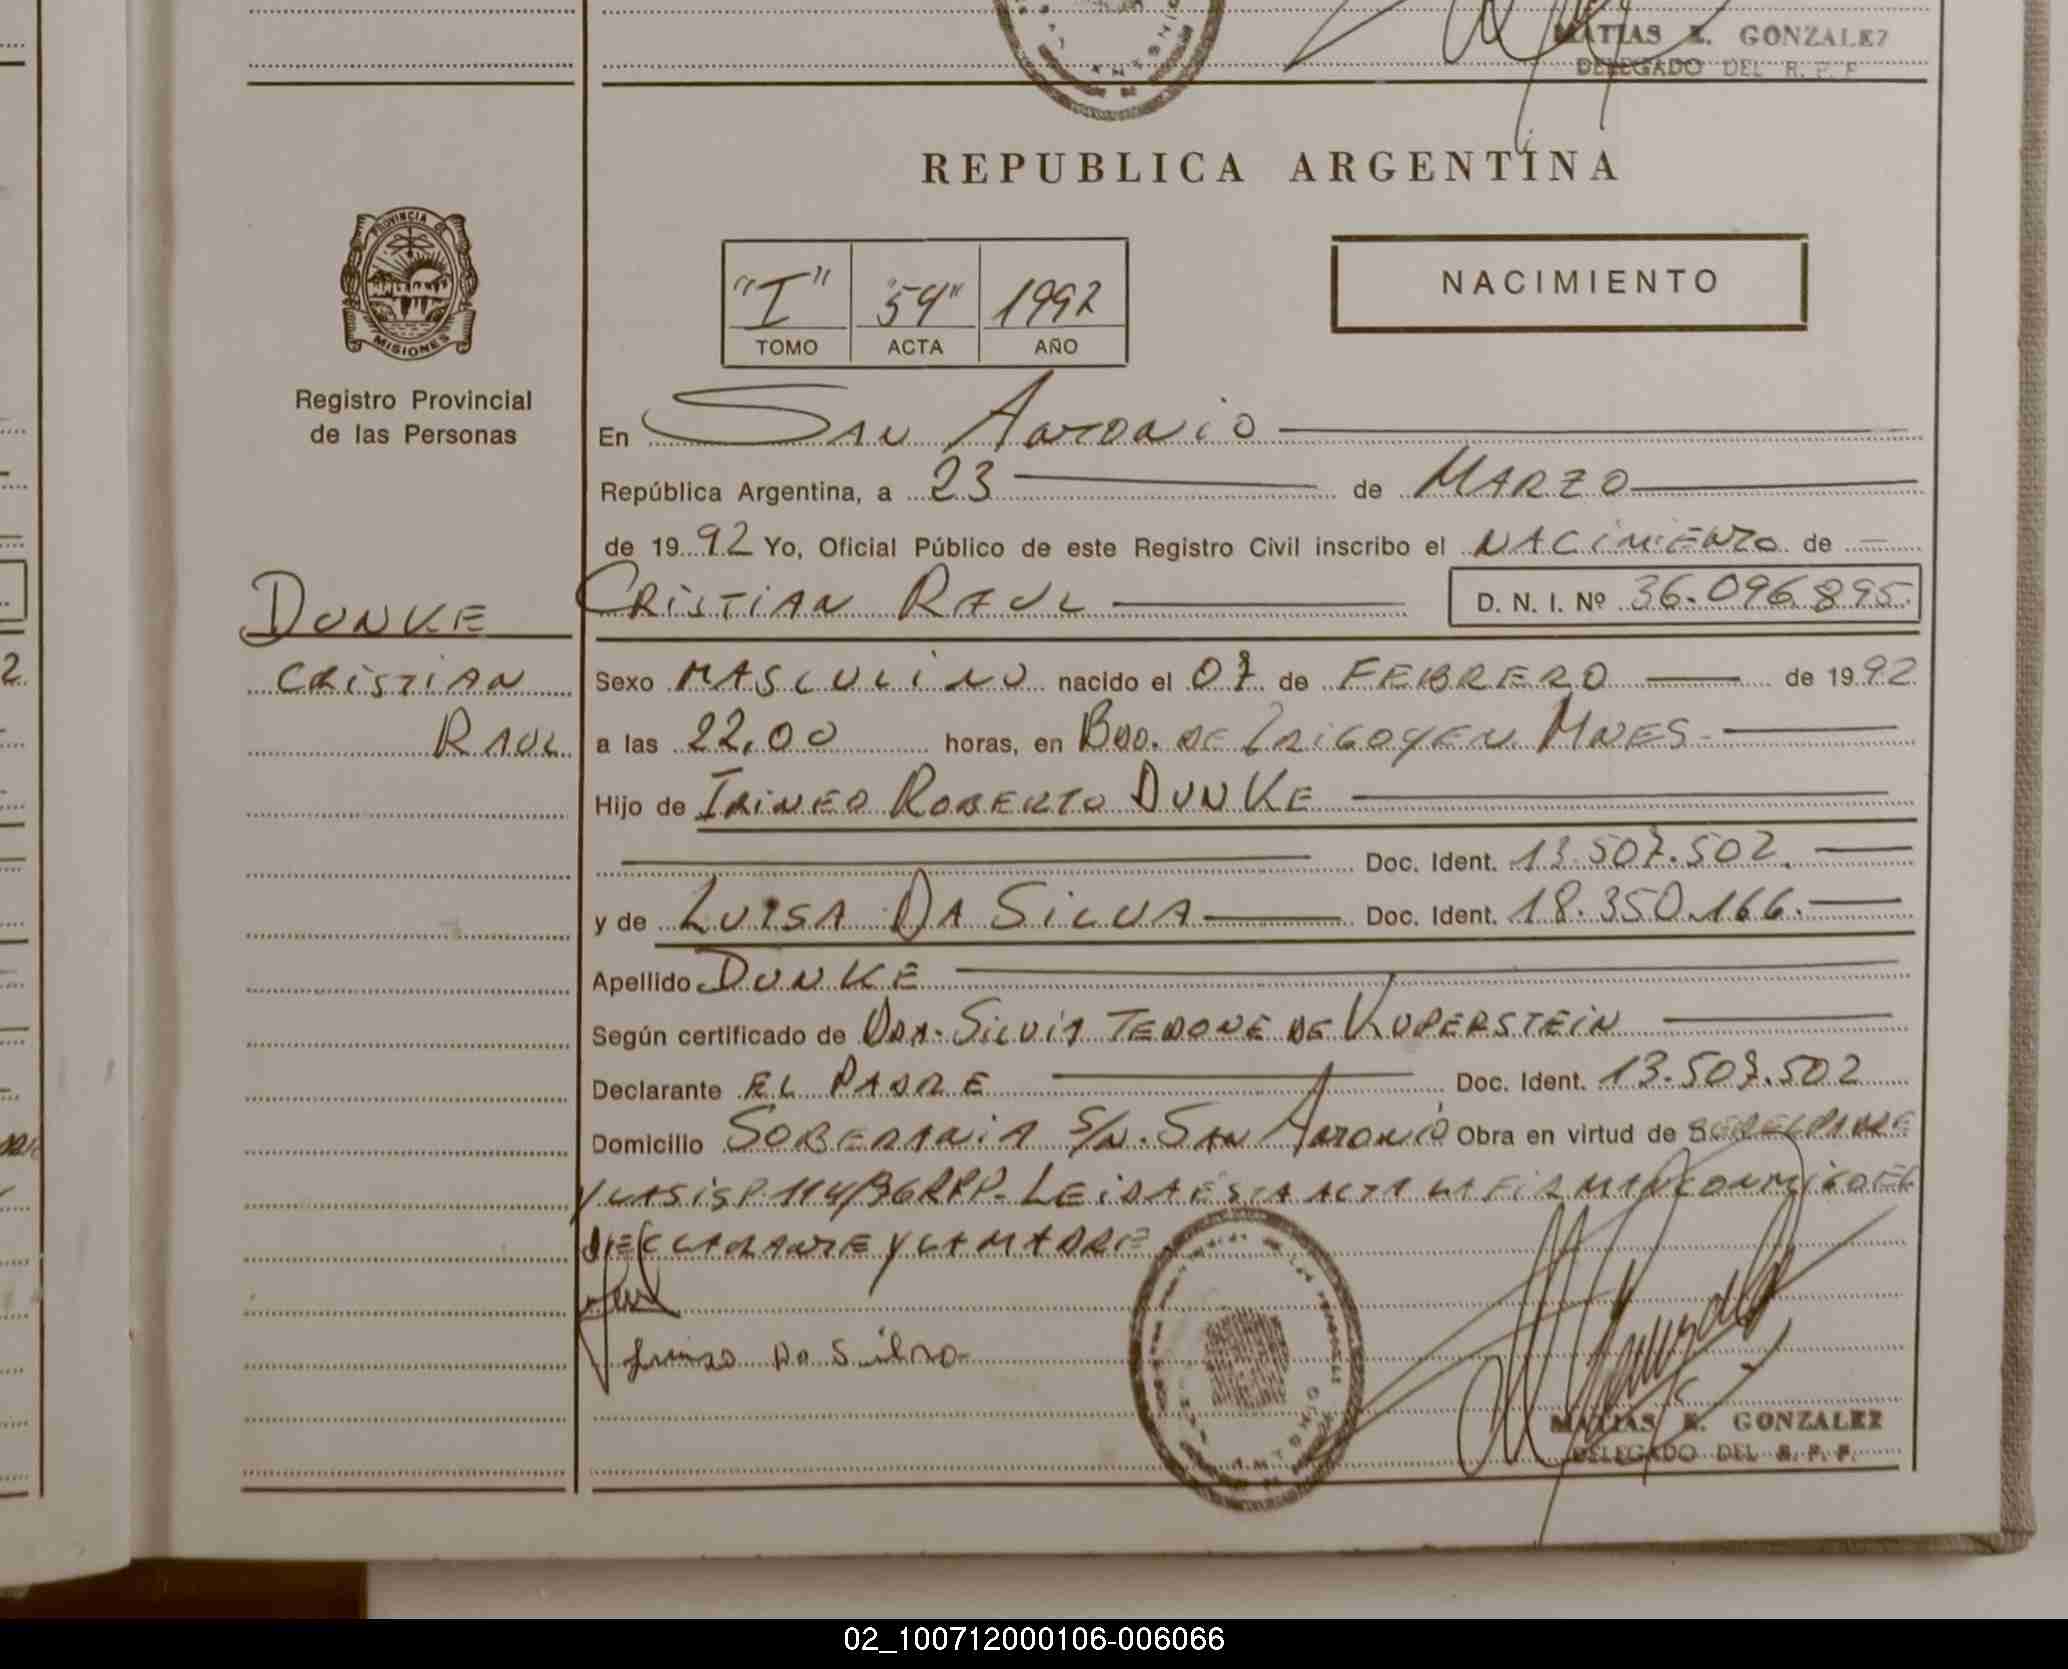 MATIAS E. GONZALEZ
DELEGADO DEL R. P. P.
REPUBLICA ARGENTINA
PROVINCIA DE
MISIONES
Registro Provincial
de las Personas
"I" "54" 1992
TOMO ACTA AÑO
NACIMIENTO
En San Antonio
República Argentina, a 23 de MARZO
de 1992 Yo, Oficial Público de este Registro Civil inscribo el NACIMIENTO de
DUNKE
CRISTIAN
RAUL
CRISTIAN RAUL D. N. I. Nº 36.096.895.
Sexo MASCULINO nacido el 07 de FEBRERO de 1992
a las 22,00 horas, en BDO. DE IRIGOYEN MNES.
Hijo de IRINEO ROBERTO DUNKE
Doc. Ident. 13.507.502.
y de LUISA DA SILVA Doc. Ident. 18.350.166.
Apellido DUNKE
Según certificado de DRA. SILVIA TEDONE DE KUPERSTEIN
Declarante EL PADRE Doc. Ident. 13.507.502
Domicilio SOBERANIA S/N. SAN ANTONIO Obra en virtud de
Y LAS 114/36 RPP. LEIDA ESTA ACTA LA FIRMAN CONMIGO EL
DECLARANTE Y LA MADRE
Luisa Da Silva
MATIAS E. GONZALEZ
DELEGADO DEL R. P. P.
02_100712000106-006066